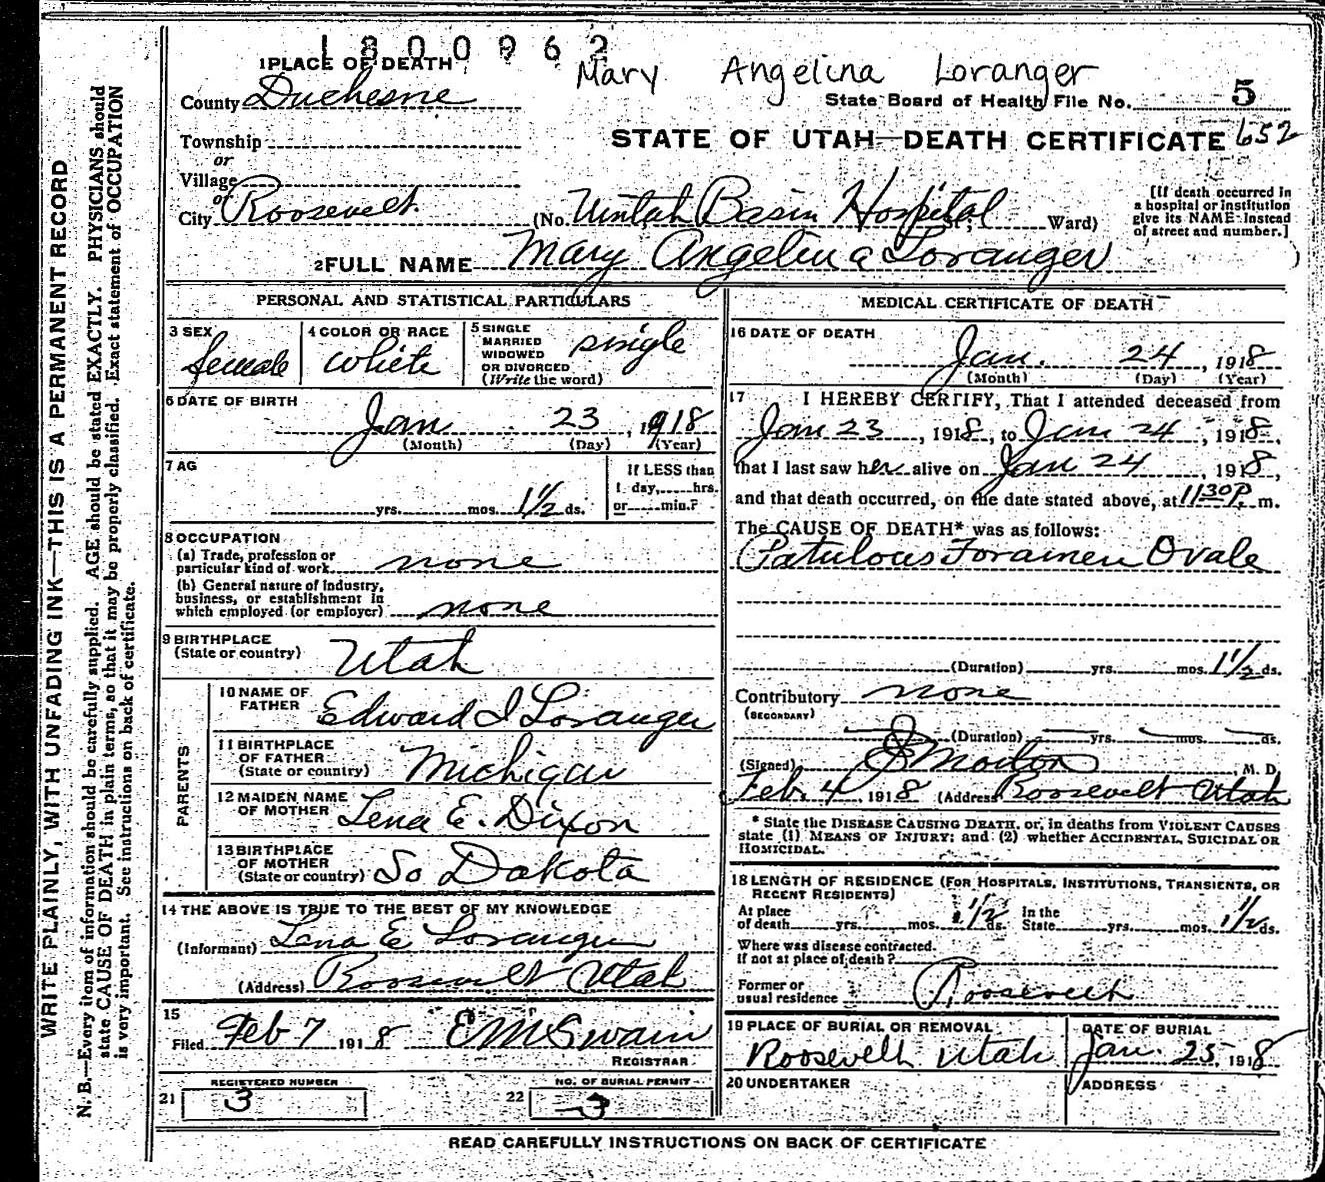 1800962
Mary Angelina Loranger
1 PLACE OF DEATH
County Duchesne
State Board of Health File No. 5
Township
STATE OF UTAH—DEATH CERTIFICATE 652
or
Village
or
City Roosevelt. (No. Uintah Basin Hospital St.; Ward)
[If death occurred in
a hospital or institution
give its NAME instead
of street and number.]
2 FULL NAME Mary Angelina Loranger
PERSONAL AND STATISTICAL PARTICULARS
3 SEX
female
4 COLOR OR RACE
white
5 SINGLE
MARRIED
WIDOWED
OR DIVORCED
(Write the word)
single
6 DATE OF BIRTH
Jan. 23, 1918
(Month) (Day) (Year)
7 AG
yrs. mos. 1 1/2 ds.
If LESS than
1 day, hrs.
or min.?
8 OCCUPATION
(a) Trade, profession or
particular kind of work none
(b) General nature of industry,
business, or establishment in
which employed (or employer) none
9 BIRTHPLACE
(State or country) Utah
PARENTS
10 NAME OF
FATHER Edward J Loranger
11 BIRTHPLACE
OF FATHER
(State or country) Michigan
12 MAIDEN NAME
OF MOTHER Lena E. Dixon
13 BIRTHPLACE
OF MOTHER
(State or country) So Dakota
14 THE ABOVE IS TRUE TO THE BEST OF MY KNOWLEDGE
(Informant) Lena E Loranger
(Address) Roosevelt Utah
15
Filed Feb 7 1918 E McSwain
REGISTRAR
REGISTERED NUMBER
21 3
NO. OF BURIAL PERMIT
22 3
MEDICAL CERTIFICATE OF DEATH
16 DATE OF DEATH
Jan. 24, 1918
(Month) (Day) (Year)
17 I HEREBY CERTIFY, That I attended deceased from
Jan 23, 1918, to Jan 24, 1918,
that I last saw her alive on Jan 24, 1918,
and that death occurred, on the date stated above, at 11 30 P. m.
The CAUSE OF DEATH* was as follows:
Patulous Foramen Ovale
(Duration) yrs. mos. 1 1/2 ds.
Contributory none
(SECONDARY)
(Duration) yrs. mos. ds.
(Signed) J Morton, M. D.
Feb. 4, 1918 (Address Roosevelt Utah
* State the DISEASE CAUSING DEATH, or, in deaths from VIOLENT CAUSES
state (1) MEANS OF INJURY; and (2) whether ACCIDENTAL, SUICIDAL OR
HOMICIDAL.
18 LENGTH OF RESIDENCE (FOR HOSPITALS, INSTITUTIONS, TRANSIENTS, OR
RECENT RESIDENTS)
At place
of death yrs. mos. 1 1/2 ds. In the
State yrs. mos. 1 1/2 ds.
Where was disease contracted.
If not at place of death?
Former or
usual residence Roosevelt
19 PLACE OF BURIAL OR REMOVAL
Roosevelt Utah
DATE OF BURIAL
Jan. 25, 1918
20 UNDERTAKER
ADDRESS
READ CAREFULLY INSTRUCTIONS ON BACK OF CERTIFICATE
WRITE PLAINLY, WITH UNFADING INK—THIS IS A PERMANENT RECORD
N. B.—Every item of information should be carefully supplied. AGE should be stated EXACTLY. PHYSICIANS should
state CAUSE OF DEATH in plain terms, so that it may be properly classified. Exact statement of OCCUPATION
is very important. See instructions on back of certificate.